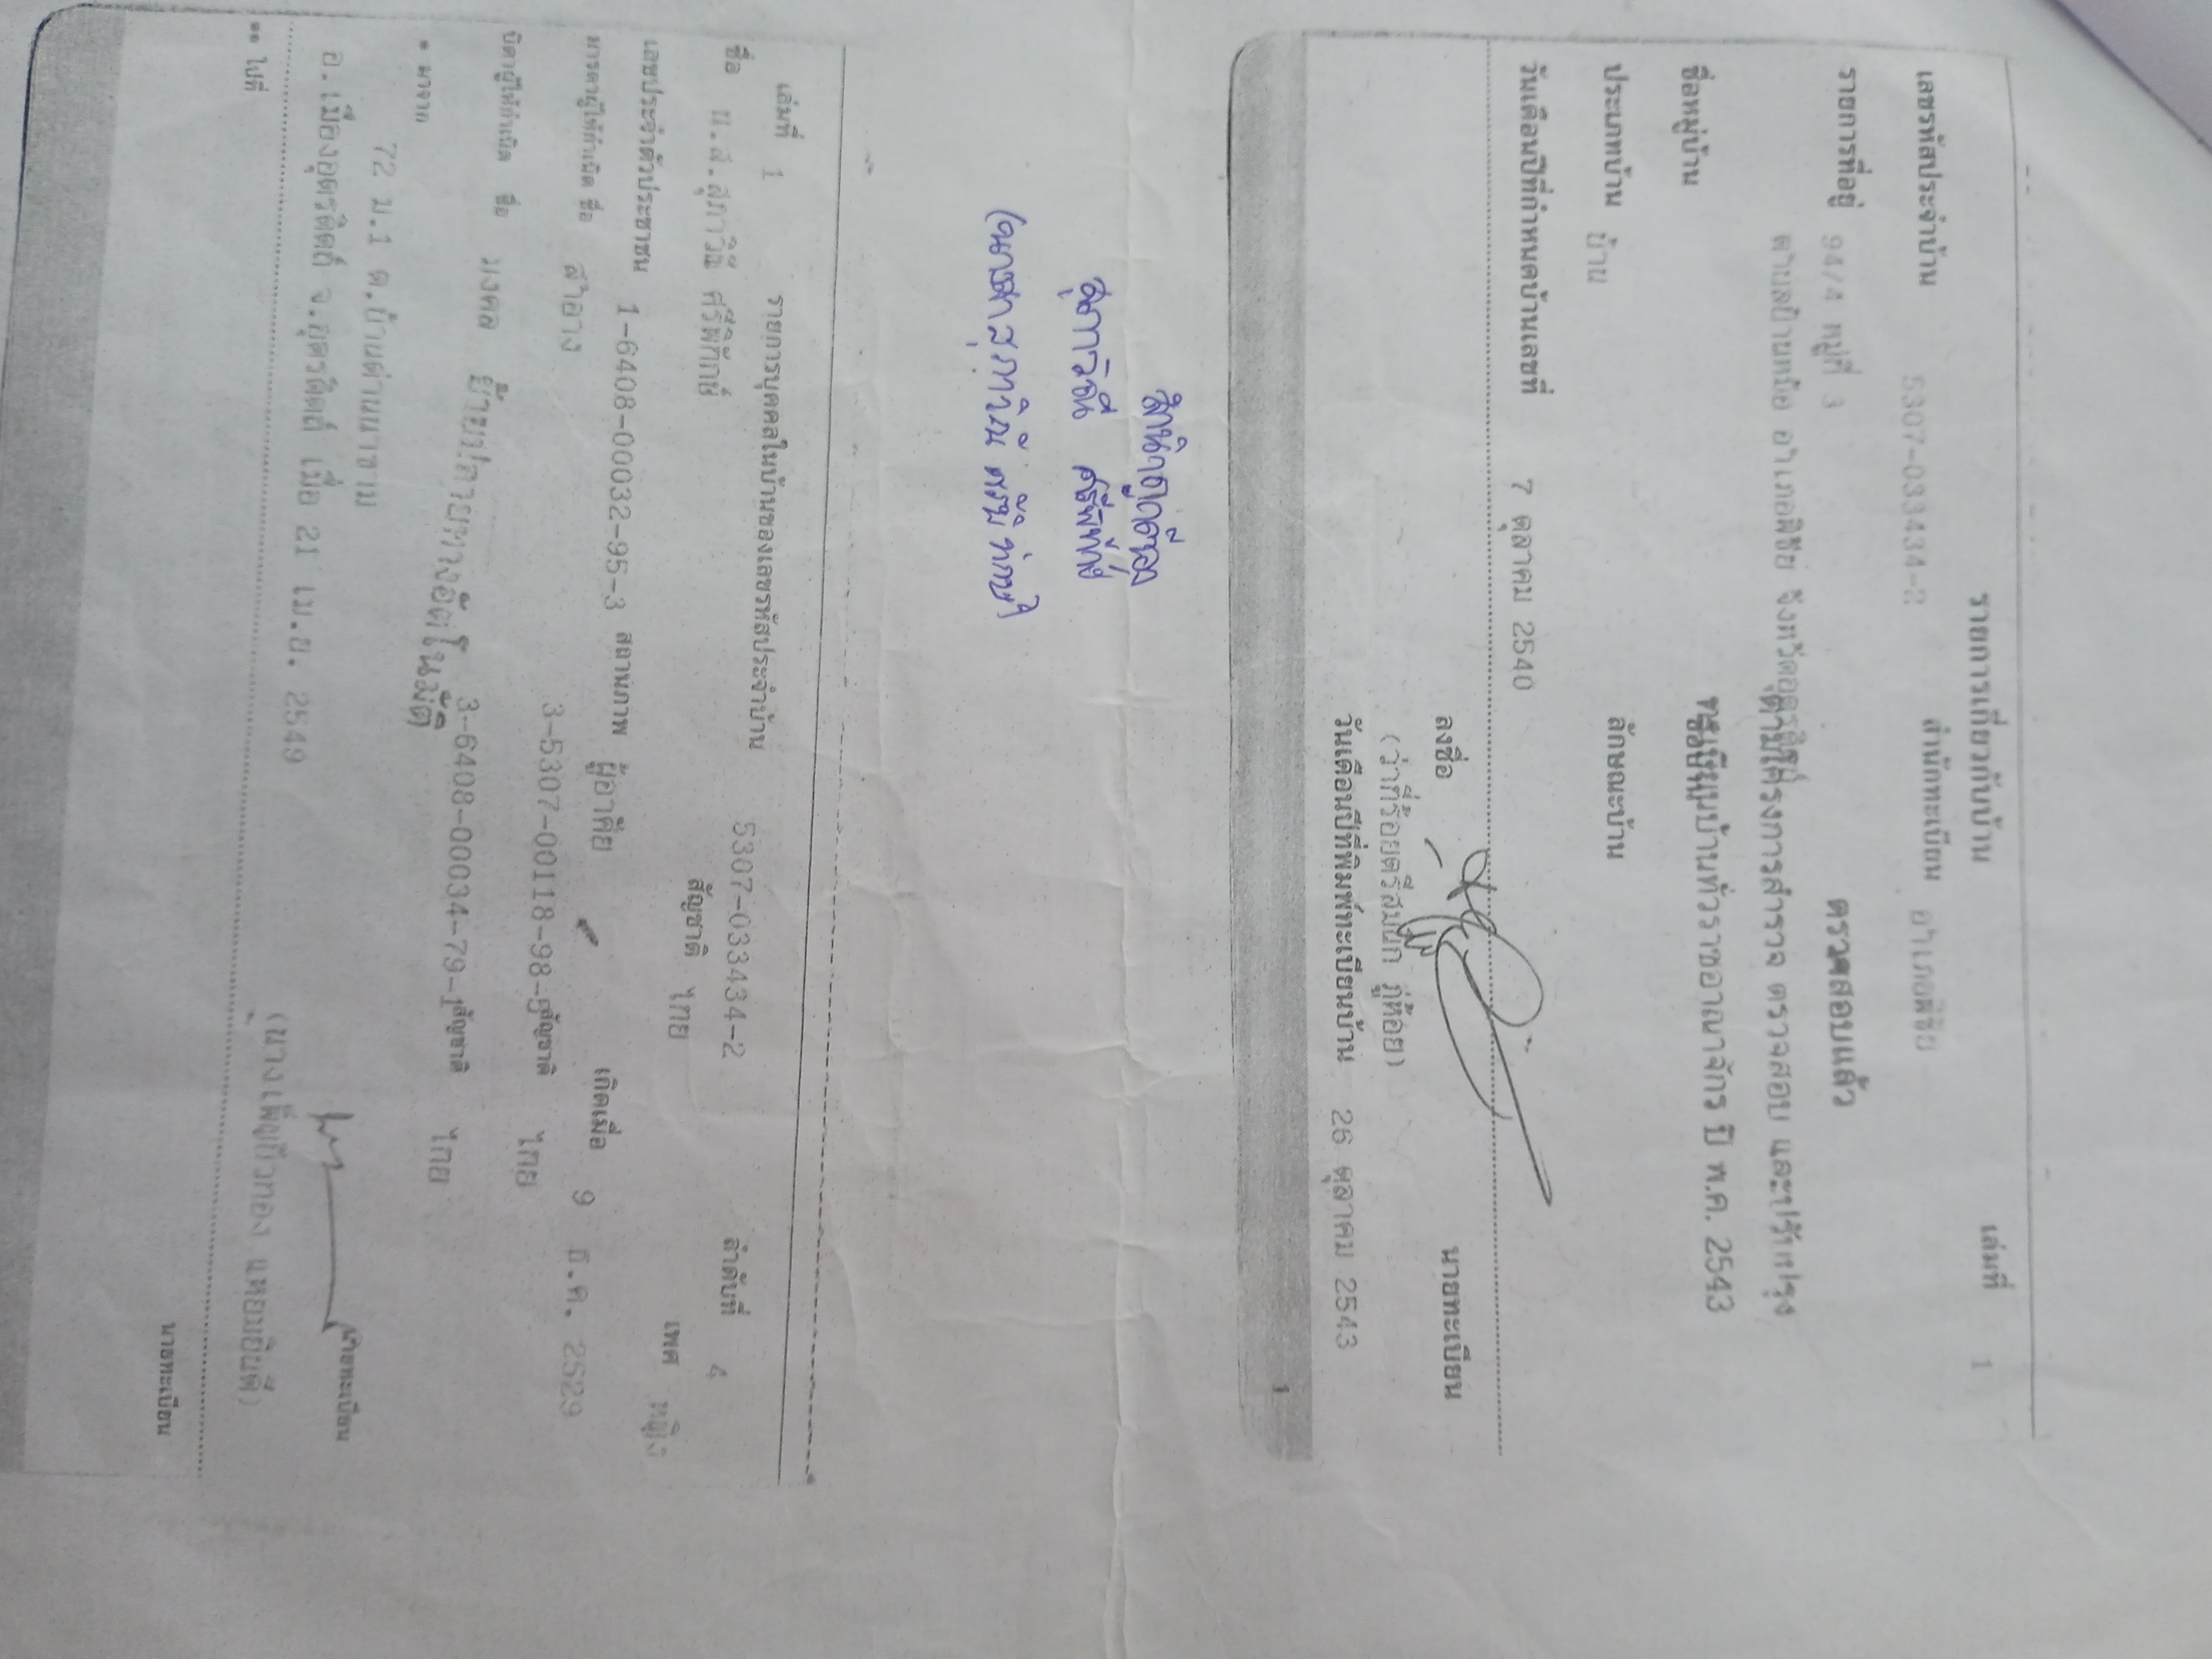 รายการเกี่ยวกับบ้าน เล่มที่ 1
เลขรหัสประจำบ้าน 5307-033434-2 สำนักทะเบียน อำเภอพิชัย
รายการที่อยู่ 94/4 หมู่ที่ 3 ตรวจสอบแล้ว
ตำบลบ้านหม้อ อำเภอพิชัย จังหวัดอุตรดิตถ์ ตามโครงการสำรวจ ตรวจสอบ และปรับปรุง
ชื่อหมู่บ้าน ชื่อบ้าน ทะเบียนบ้านทั่วราชอาณาจักร ปี พ.ศ. 2543
ประเภทบ้าน บ้าน ลักษณะบ้าน
วันเดือนปีที่กำหนดบ้านเลขที่ 7 ตุลาคม 2540
ลงชื่อ นายทะเบียน
(ว่าที่ร้อยตรีสมนึก ภู่ห้อย)
วันเดือนปีที่พิมพ์ทะเบียนบ้าน 26 ตุลาคม 2543
1
สำเนาถูกต้อง
สุภาวิณี ศรีพิทักษ์
เล่มที่ 1 รายการบุคคลในบ้านของเลขรหัสประจำบ้าน 5307-033434-2 ลำดับที่ 4
ชื่อ น.ส.สุภาวิณี ศรีพิทักษ์ สัญชาติ ไทย เพศ หญิง
เลขประจำตัวประชาชน 1-6408-00032-95-3 สถานภาพ ผู้อาศัย เกิดเมื่อ 9 ธ.ค. 2529
มารดาผู้ให้กำเนิด ชื่อ สำอาง 3-5307-00118-98-5 สัญชาติ ไทย
บิดาผู้ให้กำเนิด ชื่อ มงคล 3-6408-00034-79-1 สัญชาติ ไทย
ย้ายปลายทางอัตโนมัติ
* มาจาก 72 ม.1 ต.บ้านด่านนาขาม
อ.เมืองอุตรดิตถ์ จ.อุตรดิตถ์ เมื่อ 21 เม.ย. 2549 นายทะเบียน
** ไปที่
นายทะเบียน